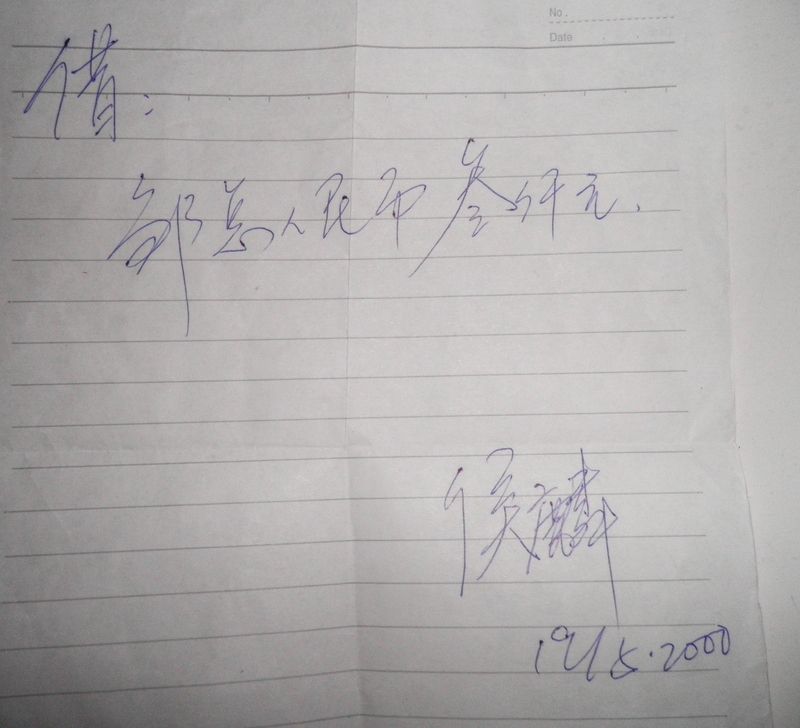 No.
Date
借:
邹总人民币叁仟元.
侯麟
19/5.2000